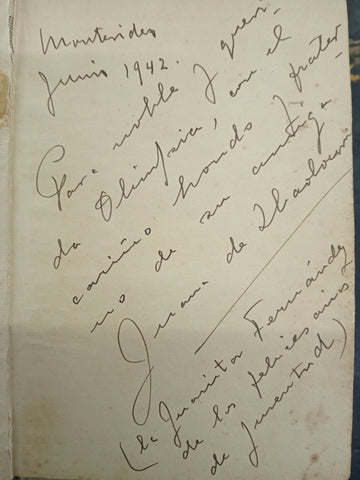 Montevideo
Junio 1942.
Para noble y queri-
da Olimpia, con el
cariño hondo y frater-
no de su amiga
Juana de Ibarbourou
(la Juanita Fernández
de los felices años
de juventud)